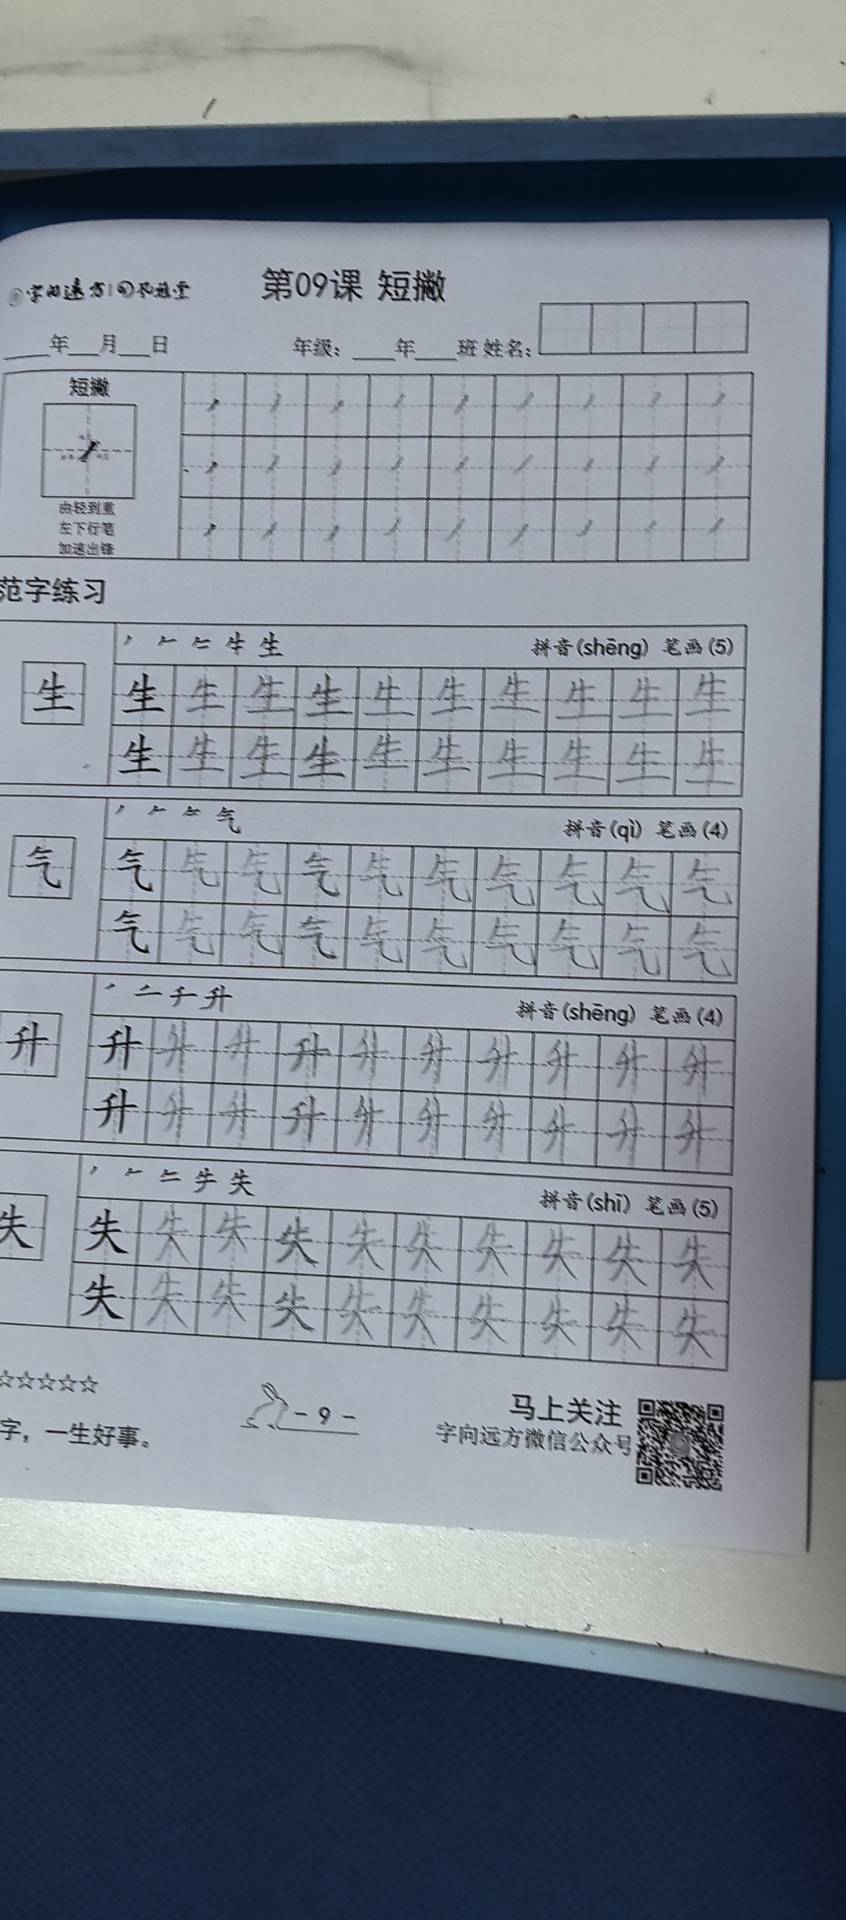 第09课 短撇
年 月 日 年级： 年 班 姓名：
短撇
由轻到重
左下行笔
加速出锋
范字练习
生 拼音(shēng) 笔画(5)
生 生 生 生 生 生 生 生 生 生 生
生 生 生 生 生 生 生 生 生 生
气 拼音(qì) 笔画(4)
气 气 气 气 气 气 气 气 气 气 气
气 气 气 气 气 气 气 气 气 气
升 拼音(shēng) 笔画(4)
升 升 升 升 升 升 升 升 升 升 升
升 升 升 升 升 升 升 升 升 升
失 拼音(shī) 笔画(5)
失 失 失 失 失 失 失 失 失 失 失
失 失 失 失 失 失 失 失 失 失
☆☆☆☆☆
字，一生好事。
- 9 -
马上关注
字向远方微信公众号